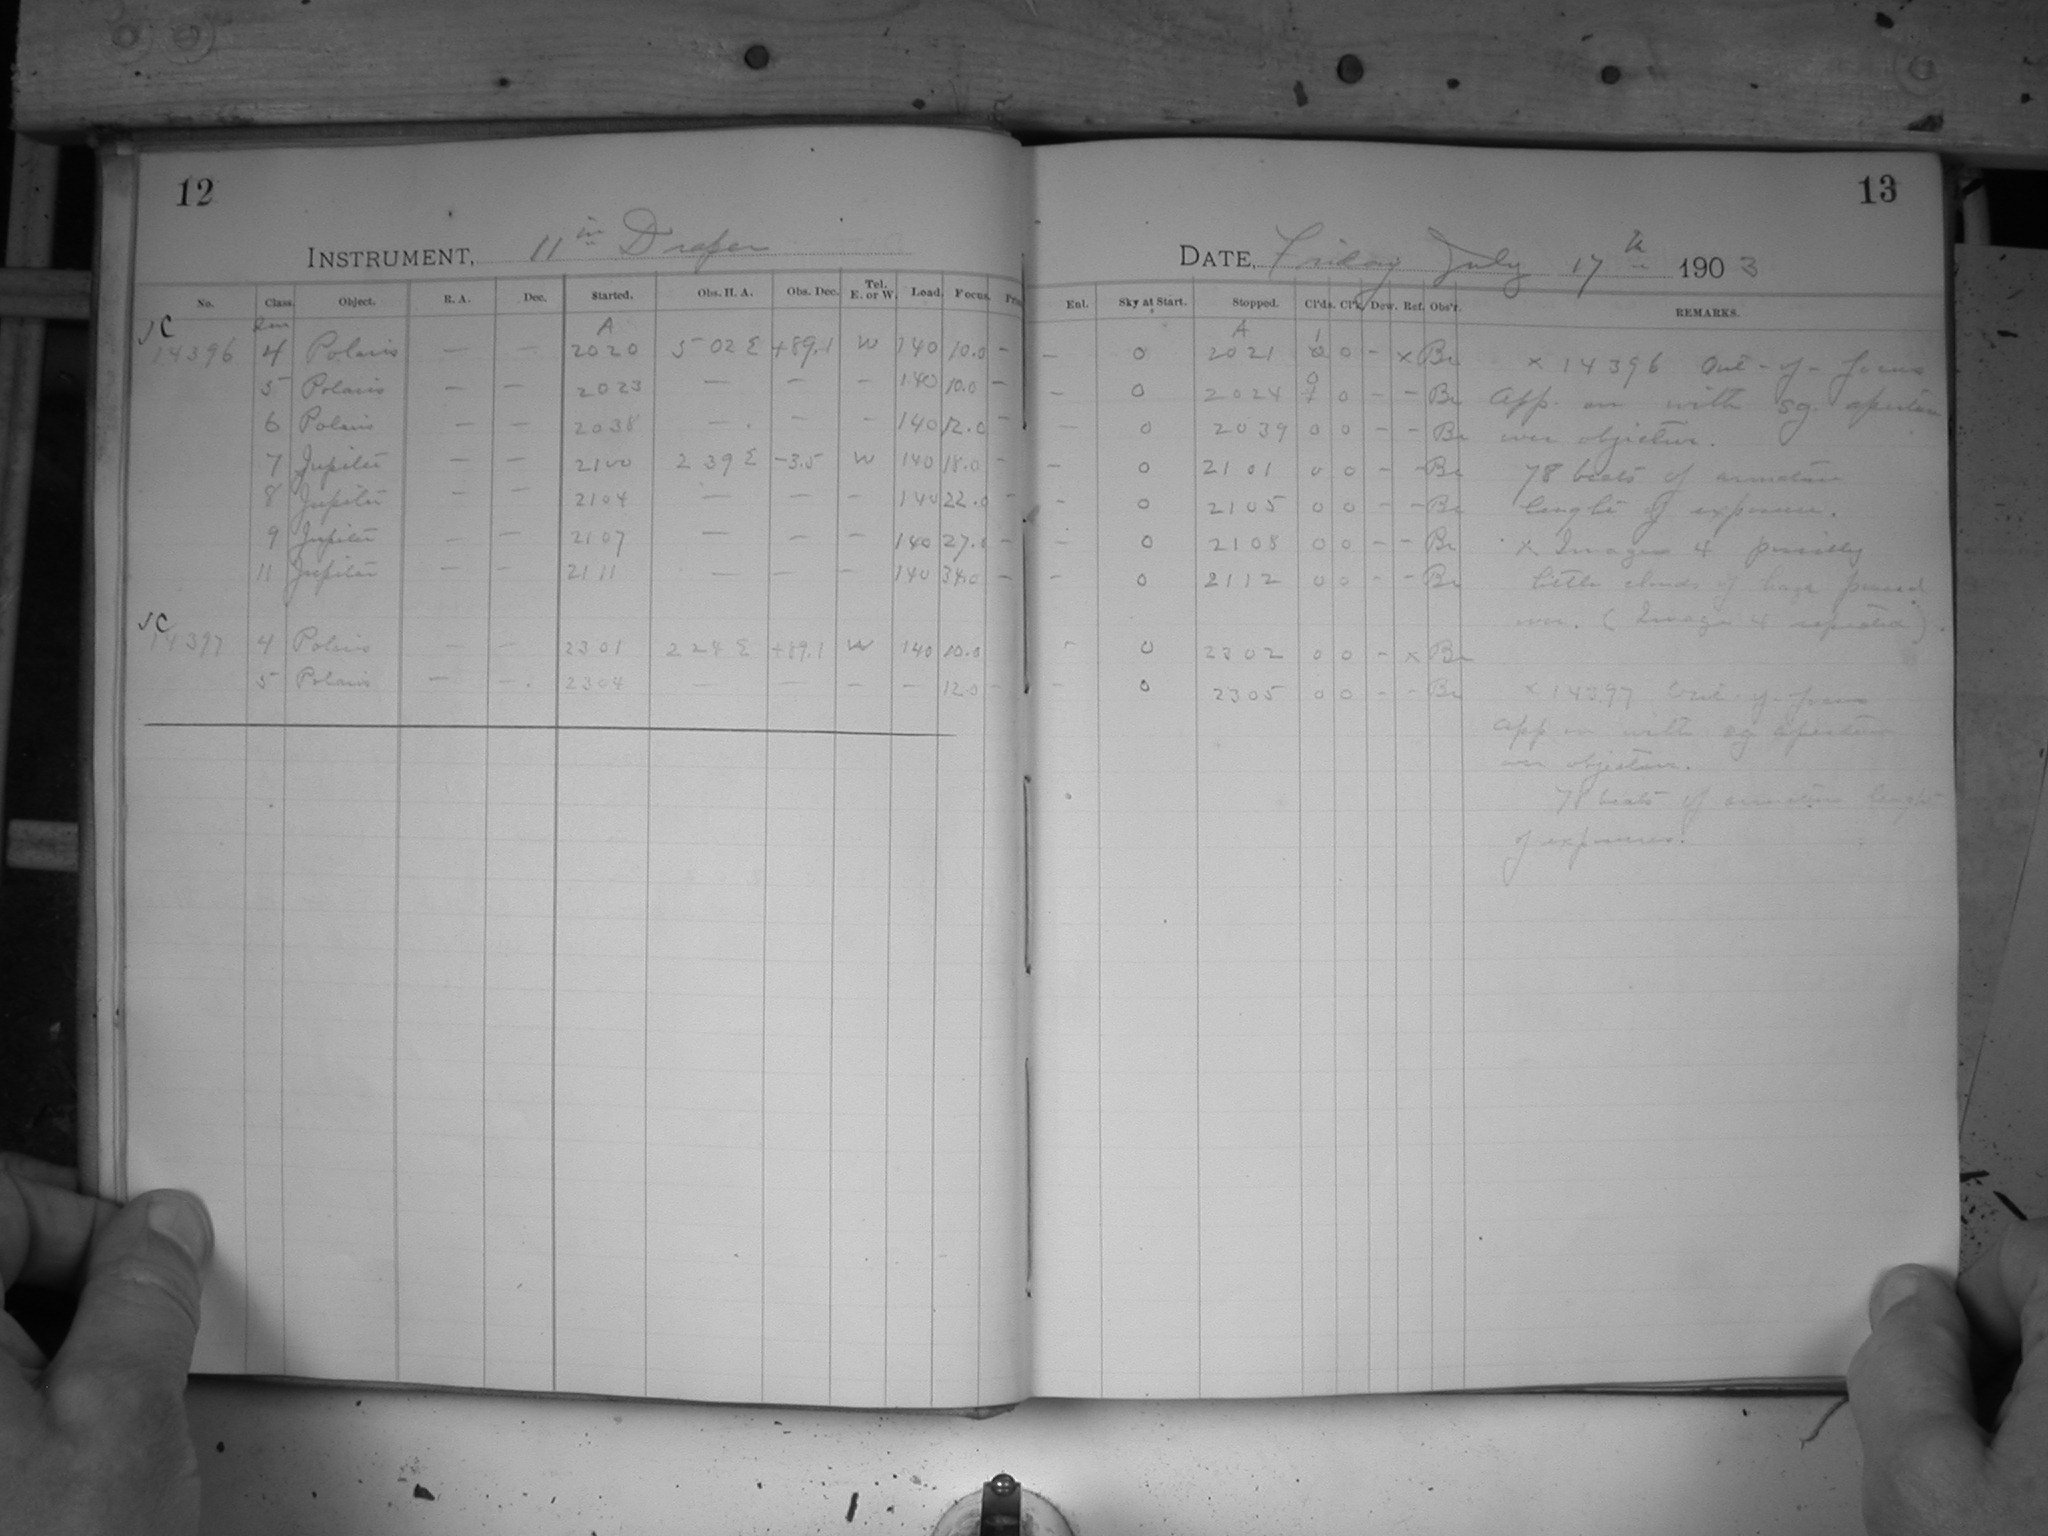 12
INSTRUMENT, 11 in Draper
No. Class. Object. R. A. Dec. Started. Obs. H. A. Obs. Dec. Tel. E. or W. Load. Focus.
A
JC
14396 4 Polaris — — 2020 5 02 E +89.1 W 140 10.0 -
5 Polaris — — 2023 — — — 140 10.0 —
6 Polaris — — 2038 — — — 140 12.0
7 Jupiter — — 2100 2 39 E -3.5 W 140 18.0 -
8 Jupiter — — 2104 — — — 140 22.0 -
9 Jupiter — — 2107 — — — 140 27.0 -
11 Jupiter — — 2111 — — — 140 34.0 -
JC
14397 4 Polaris — — 2301 2 24 E +89.1 W 140 10.0
5 Polaris — — 2304 — — — — 12.0 -
13
DATE, Friday July 17 th 1903
Enl. Sky at Start. Stopped. Cl'ds. Cl'k. Dew. Ref. Obs'r. REMARKS.
A 1
- 0 2021 0 0 - x Br x 14396 Out-of-focus
0
- 0 2024 0 - - Br App. on with sq. aperture
- 0 2039 0 0 - - Br over objective.
- 0 2101 0 0 - - Br 78 beats of armature
- 0 2105 0 0 - - Br lenght of exposure.
- 0 2108 0 0 - - Br x Image 4 possibly
- 0 2112 0 0 - - Br little clouds of haze passed
over. (Image 4 repeated).
- 0 2302 0 0 - x Br
- 0 2305 0 0 - - Br x 14397 Out-of-focus
App on with sq aperture
over objective.
78 beats of armature lenght
of exposures.